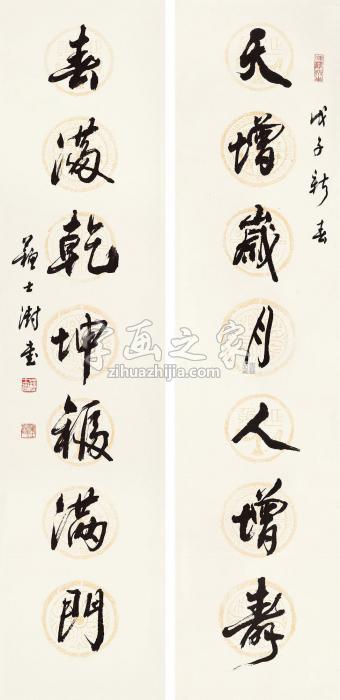 戊子新春
天增歲月人增壽
春滿乾坤福滿門
蘇士澍書
字画之家
zihuazhijia.com